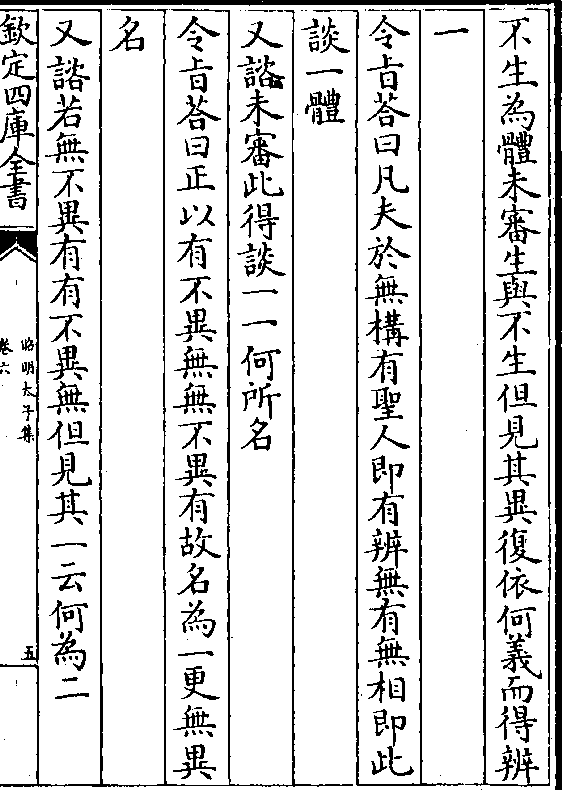 不生為體未審生與不生但見其異復依何義而得辨
一
令旨荅曰凡夫於無構有聖人即有辨無有無相即此
談一體
又諮未審此得談一一何所名
令旨荅曰正以有不異無無不異有故名為一更無異
名
又諮若無不異有有不異無但見其一云何為二
欽定四庫全書
昭明太子集
卷六
五